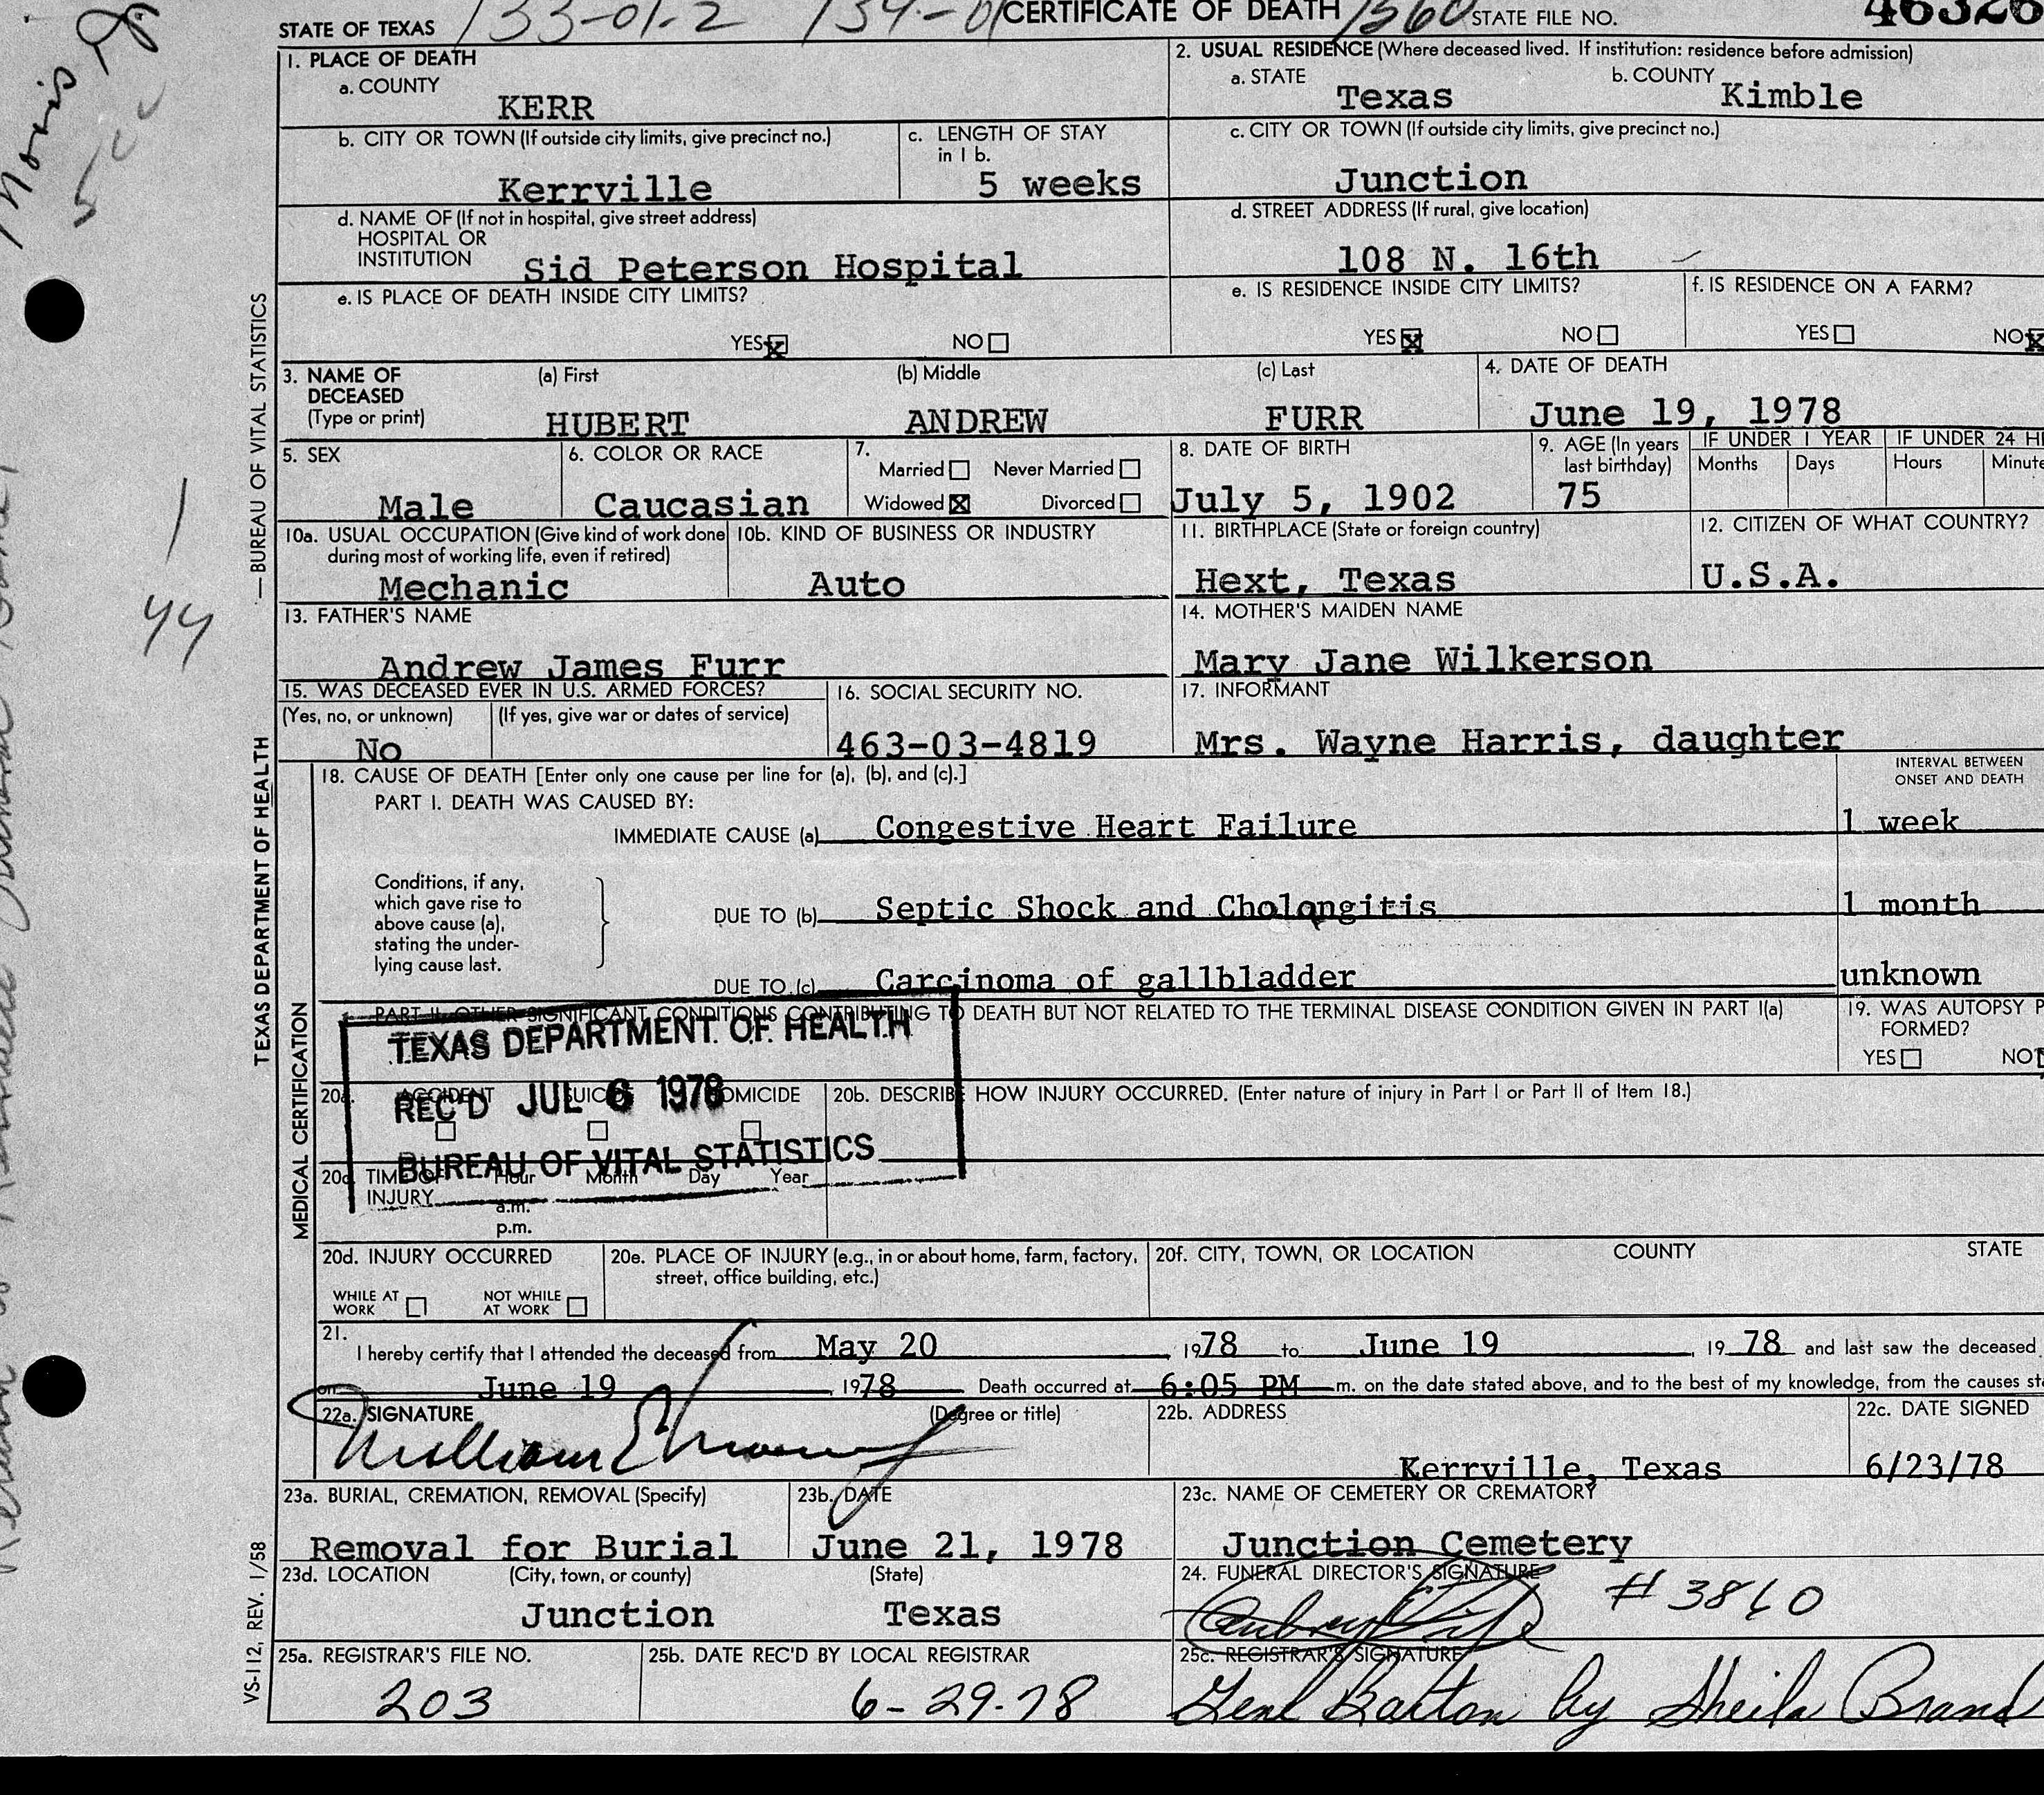 STATE OF TEXAS 133-01-2 154-01 CERTIFICATE OF DEATH 1560 STATE FILE NO. 46326
1. PLACE OF DEATH
a. COUNTY
KERR
2. USUAL RESIDENCE (Where deceased lived. If institution: residence before admission)
a. STATE
Texas
b. COUNTY
Kimble
b. CITY OR TOWN (If outside city limits, give precinct no.)
Kerrville
c. LENGTH OF STAY
in 1 b.
5 weeks
c. CITY OR TOWN (If outside city limits, give precinct no.)
Junction
d. NAME OF (If not in hospital, give street address)
HOSPITAL OR
INSTITUTION
Sid Peterson Hospital
d. STREET ADDRESS (If rural, give location)
108 N. 16th
e. IS PLACE OF DEATH INSIDE CITY LIMITS?
YES NO
e. IS RESIDENCE INSIDE CITY LIMITS?
YES NO
f. IS RESIDENCE ON A FARM?
YES NO
3. NAME OF
DECEASED
(Type or print)
(a) First
HUBERT
(b) Middle
ANDREW
(c) Last
FURR
4. DATE OF DEATH
June 19, 1978
5. SEX
Male
6. COLOR OR RACE
Caucasian
7.
Married Never Married
Widowed Divorced
8. DATE OF BIRTH
July 5, 1902
9. AGE (In years
last birthday)
75
IF UNDER 1 YEAR
Months Days
IF UNDER 24 H
Hours Minute
10a. USUAL OCCUPATION (Give kind of work done
during most of working life, even if retired)
Mechanic
10b. KIND OF BUSINESS OR INDUSTRY
Auto
11. BIRTHPLACE (State or foreign country)
Hext, Texas
12. CITIZEN OF WHAT COUNTRY?
U.S.A.
13. FATHER'S NAME
Andrew James Furr
14. MOTHER'S MAIDEN NAME
Mary Jane Wilkerson
15. WAS DECEASED EVER IN U.S. ARMED FORCES?
(Yes, no, or unknown) (If yes, give war or dates of service)
No
16. SOCIAL SECURITY NO.
463-03-4819
17. INFORMANT
Mrs. Wayne Harris, daughter
18. CAUSE OF DEATH [Enter only one cause per line for (a), (b), and (c).]
INTERVAL BETWEEN
ONSET AND DEATH
PART I. DEATH WAS CAUSED BY:
IMMEDIATE CAUSE (a) Congestive Heart Failure 1 week
Conditions, if any,
which gave rise to
above cause (a),
stating the under-
lying cause last.
DUE TO (b) Septic Shock and Cholangitis 1 month
DUE TO (c) Carcinoma of gallbladder unknown
PART II. OTHER SIGNIFICANT CONDITIONS CONTRIBUTING TO DEATH BUT NOT RELATED TO THE TERMINAL DISEASE CONDITION GIVEN IN PART I(a)
19. WAS AUTOPSY P
FORMED?
YES NO
TEXAS DEPARTMENT OF HEALTH
REC'D JUL 6 1978
BUREAU OF VITAL STATISTICS
20a. ACCIDENT SUICIDE HOMICIDE
20b. DESCRIBE HOW INJURY OCCURRED. (Enter nature of injury in Part I or Part II of Item 18.)
20c. TIME OF Hour Month Day Year
INJURY
a.m.
p.m.
20d. INJURY OCCURRED
WHILE AT
WORK
NOT WHILE
AT WORK
20e. PLACE OF INJURY (e.g., in or about home, farm, factory,
street, office building, etc.)
20f. CITY, TOWN, OR LOCATION COUNTY STATE
21.
I hereby certify that I attended the deceased from May 20, 1978 to June 19, 1978 and last saw the deceased
on June 19, 1978 Death occurred at 6:05 PM m. on the date stated above, and to the best of my knowledge, from the causes st
22a. SIGNATURE (Degree or title)
William E
22b. ADDRESS
Kerrville, Texas
22c. DATE SIGNED
6/23/78
23a. BURIAL, CREMATION, REMOVAL (Specify)
Removal for Burial
23b. DATE
June 21, 1978
23c. NAME OF CEMETERY OR CREMATORY
Junction Cemetery
23d. LOCATION (City, town, or county) (State)
Junction Texas
24. FUNERAL DIRECTOR'S SIGNATURE
# 3860
25a. REGISTRAR'S FILE NO.
203
25b. DATE REC'D BY LOCAL REGISTRAR
6-29-78
25c. REGISTRAR'S SIGNATURE
Gene Barton by Sheila Brand
TEXAS DEPARTMENT OF HEALTH — BUREAU OF VITAL STATISTICS
MEDICAL CERTIFICATION
VS-112, REV. 1/58
1
44